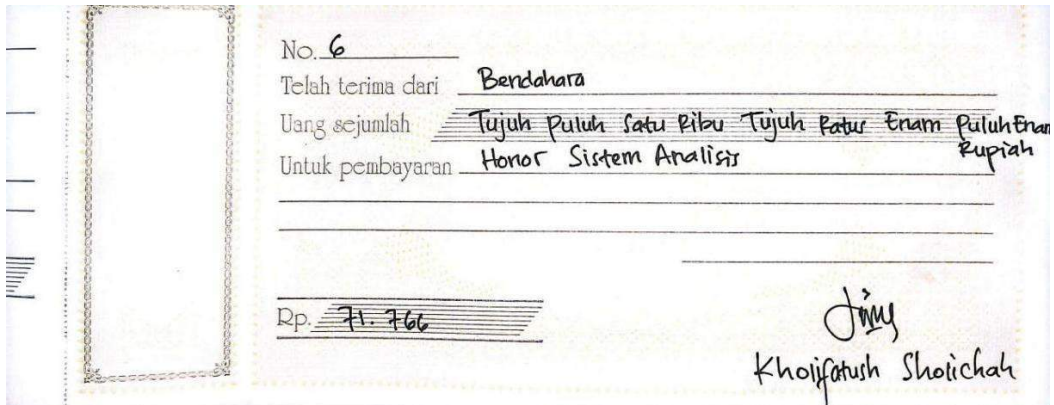 No. 6
Telah terima dari Bendahara
Uang sejumlah Tujuh Puluh Satu Ribu Tujuh Ratus Enam Puluh Enam
Rupiah
Untuk pembayaran Honor Sistem Analisis
Rp. 71.766
Kholifatush Sholichah